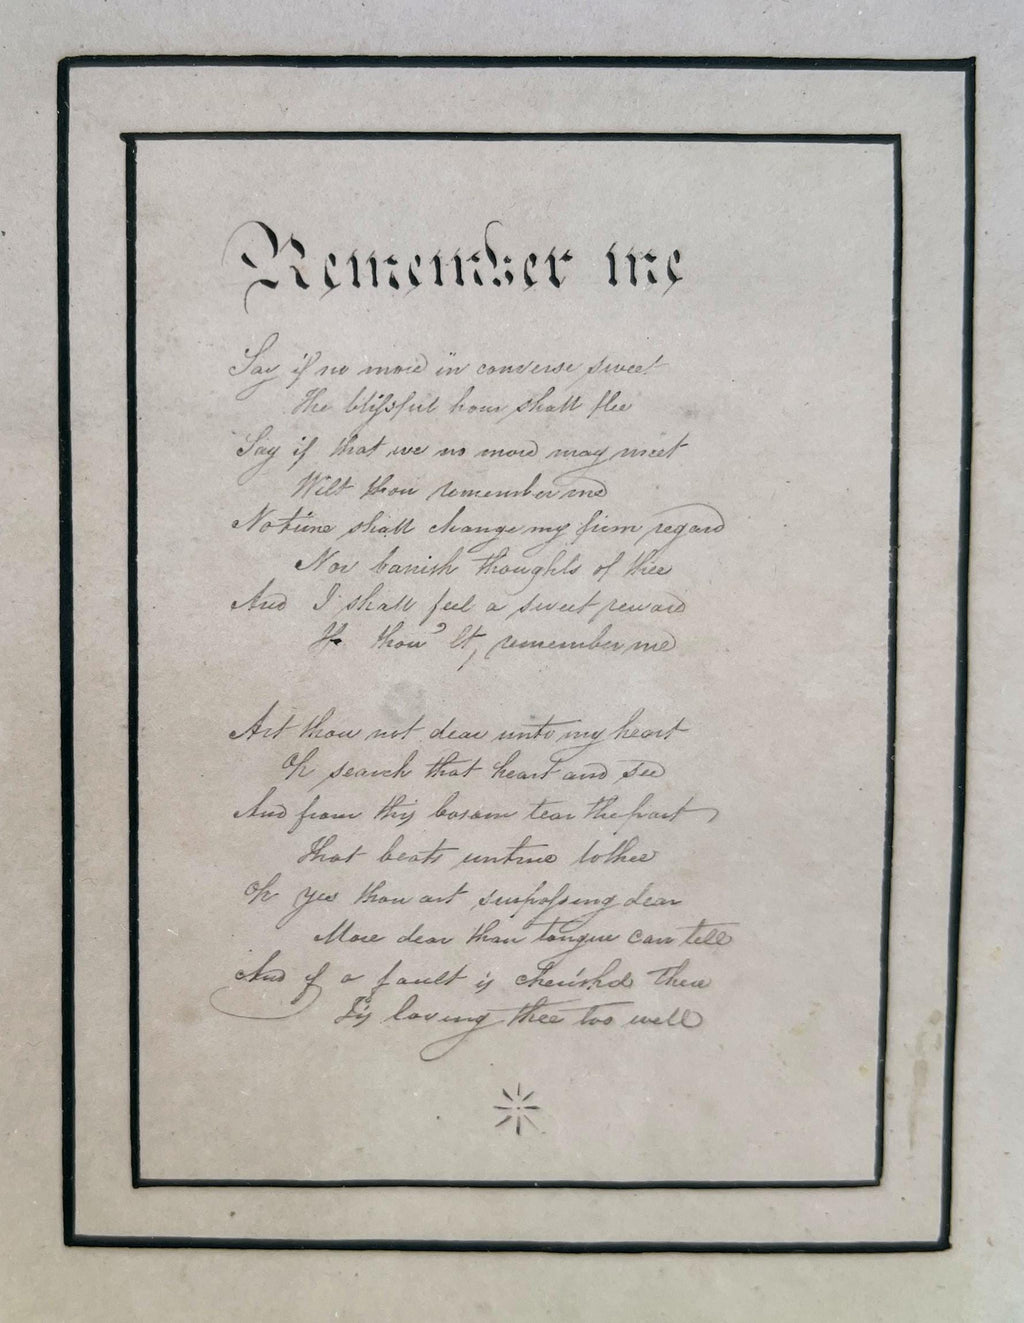 Remember me
Say if no more in converse sweet
The blissful hour shall flee
Say if that we no more may meet
Wilt thou remember me
No time shall change my firm regard
Nor banish thoughts of thee
And I shall feel a sweet reward
If thou'lt, remember me
Art thou not dear unto my heart
Oh search that heart and see
And from this bosom tear the part
That beats untrue to thee
Oh yes thou art surpassing dear
More dear than tongue can tell
And if a fault is cherishd there
Tis loving thee too well